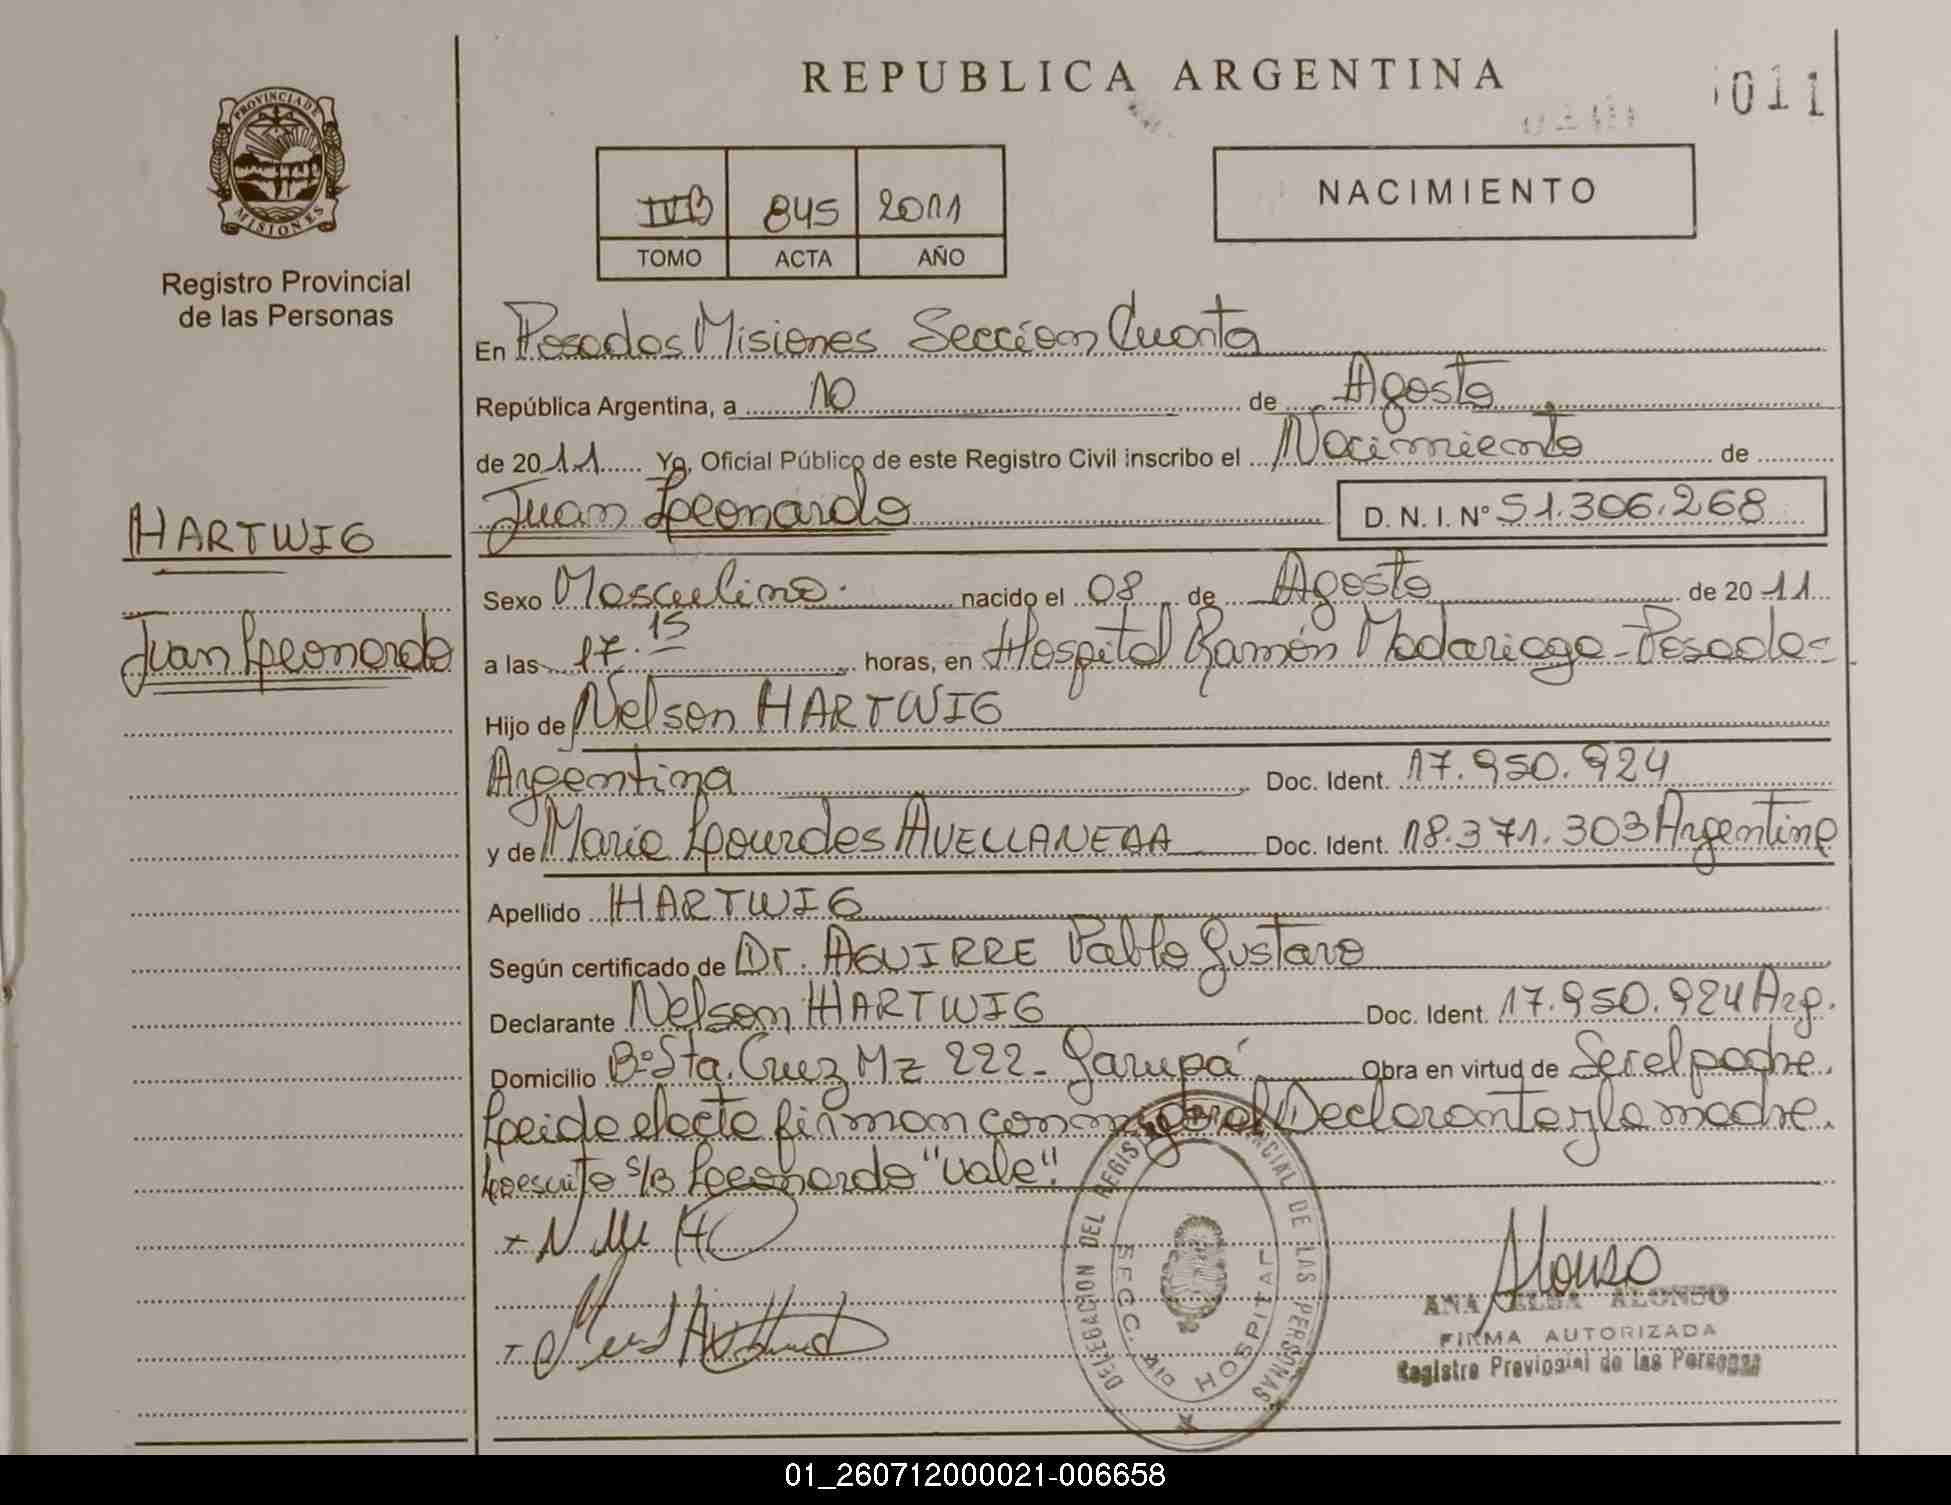 REPUBLICA ARGENTINA
011
PROVINCIA DE MISIONES
Registro Provincial
de las Personas
IVB 845 2011
TOMO ACTA AÑO
NACIMIENTO
En Posadas Misiones Sección Cuarta
República Argentina, a 10 de Agosto
de 2011 Yo, Oficial Público de este Registro Civil inscribo el Nacimiento de
Juan Leonardo D. N. I. Nº 51.306.268
HARTWIG
Juan Leonardo
Sexo Masculino. nacido el 08 de Agosto de 2011
a las 17.15 horas, en Hospital Ramón Madariaga - Posadas
Hijo de Nelson HARTWIG
Argentina Doc. Ident. 17.950.924
y de María Lourdes AVELLANEDA Doc. Ident. 18.371.303 Argentina
Apellido HARTWIG
Según certificado de Dr. AGUIRRE Pablo Gustavo
Declarante Nelson HARTWIG Doc. Ident. 17.950.924 Arg.
Domicilio Bº Sta. Cruz Mz 222 - Garupá Obra en virtud de Ser el padre.
Leida el acta firman conmigo el Declarante y la madre.
Lo escrito S/B Leonardo "vale".
DELEGACION DEL REGISTRO PROVINCIAL DE LAS PERSONAS
SECC. HOSPITAL
Alonso
ANA ALBA ALONSO
FIRMA AUTORIZADA
Registro Provincial de las Personas
01_260712000021-006658